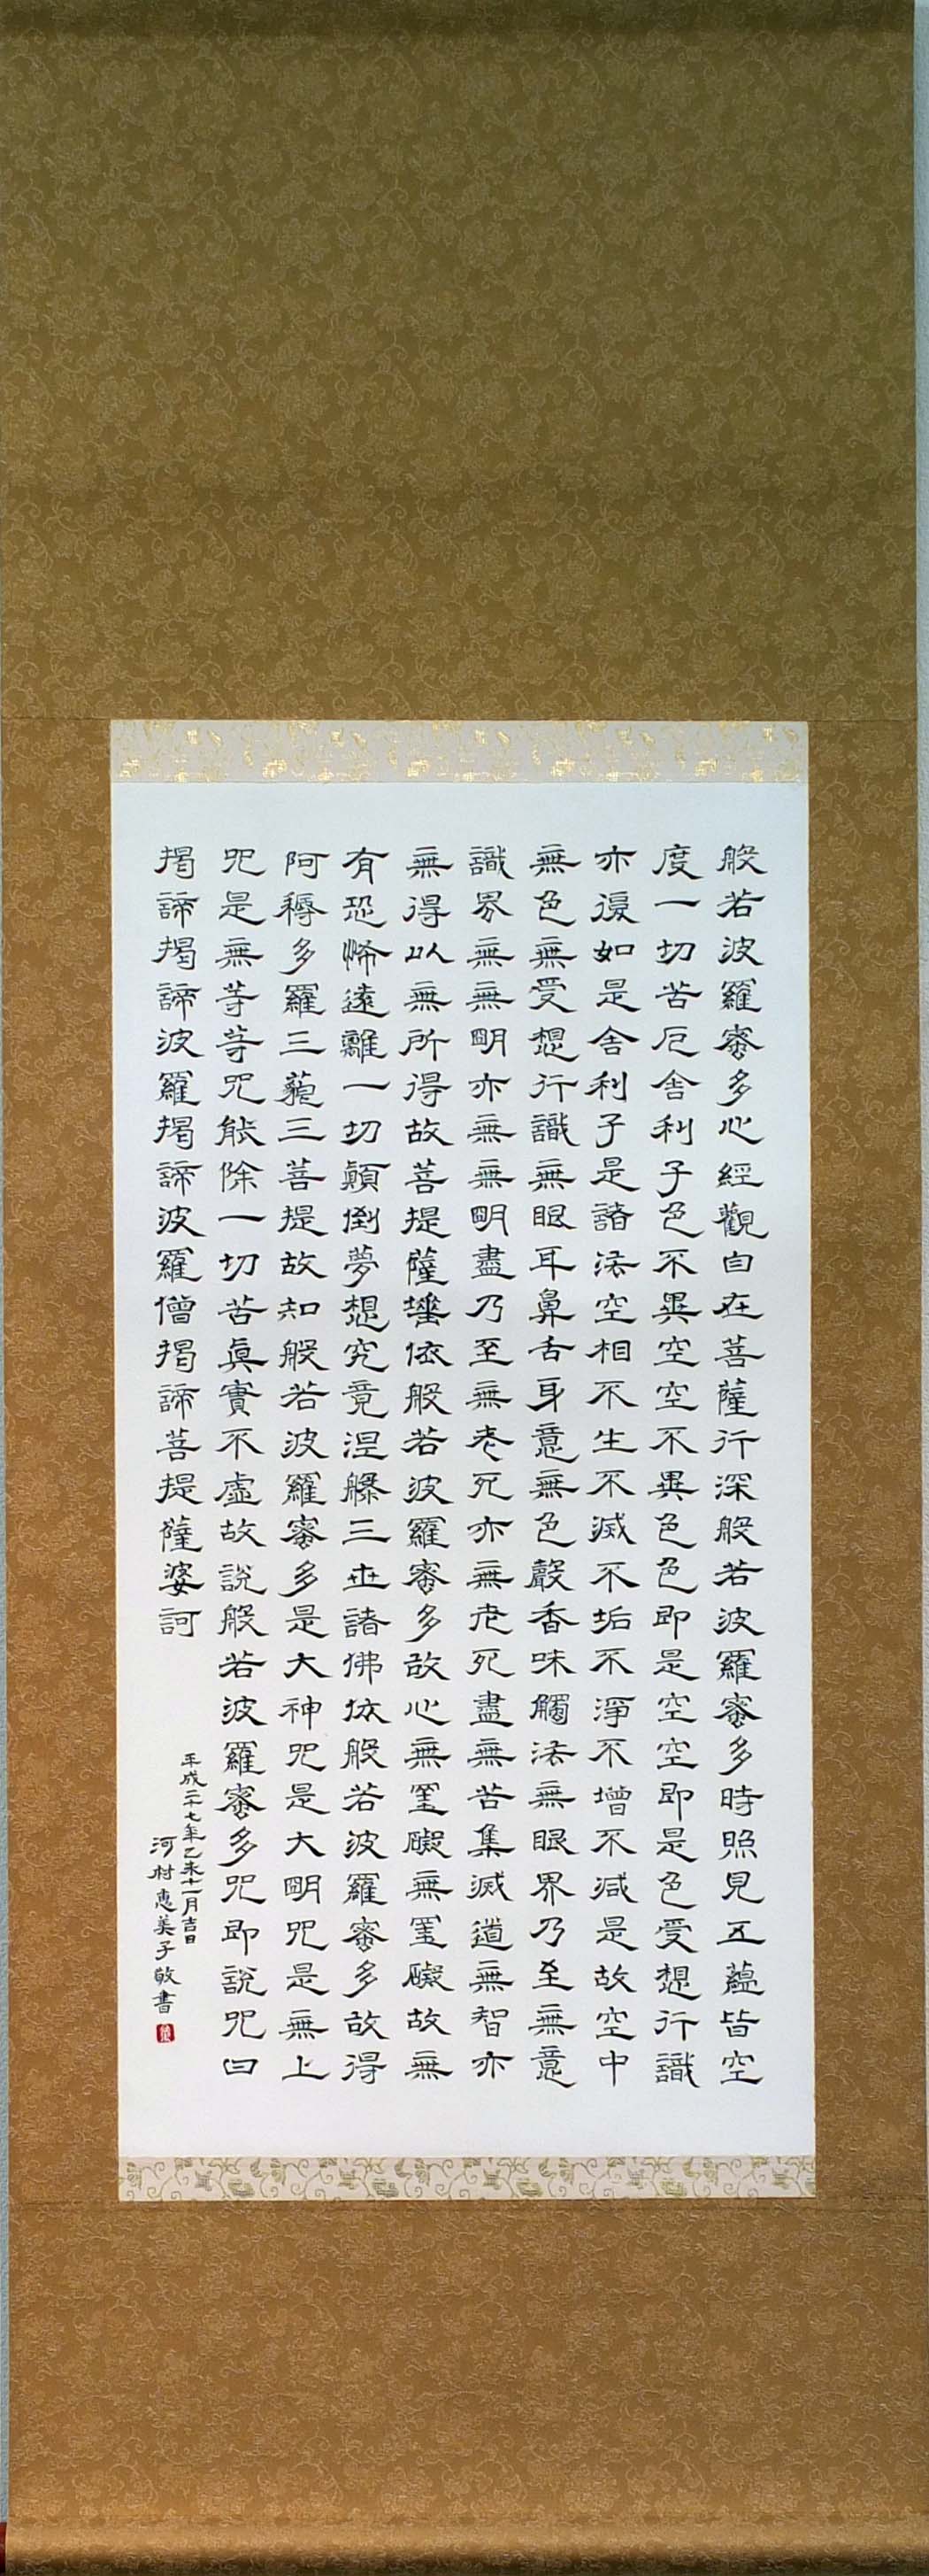 般若波羅蜜多心經觀自在菩薩行深般若波羅蜜多時照見五蘊皆空
度一切苦厄舍利子色不異空空不異色色即是空空即是色受想行識
亦復如是舍利子是諸法空相不生不滅不垢不淨不增不減是故空中
無色無受想行識無眼耳鼻舌身意無色聲香味觸法無眼界乃至無意
識界無無明亦無無明盡乃至無老死亦無老死盡無苦集滅道無智亦
無得以無所得故菩提薩埵依般若波羅蜜多故心無罣礙無罣礙故無
有恐怖遠離一切顛倒夢想究竟涅槃三世諸佛依般若波羅蜜多故得
阿耨多羅三藐三菩提故知般若波羅蜜多是大神咒是大明咒是無上
咒是無等等咒能除一切苦真實不虛故說般若波羅蜜多咒即說咒曰
揭諦揭諦波羅揭諦波羅僧揭諦菩提薩婆訶
平成二十七年乙未十一月吉日
河村惠美子敬書